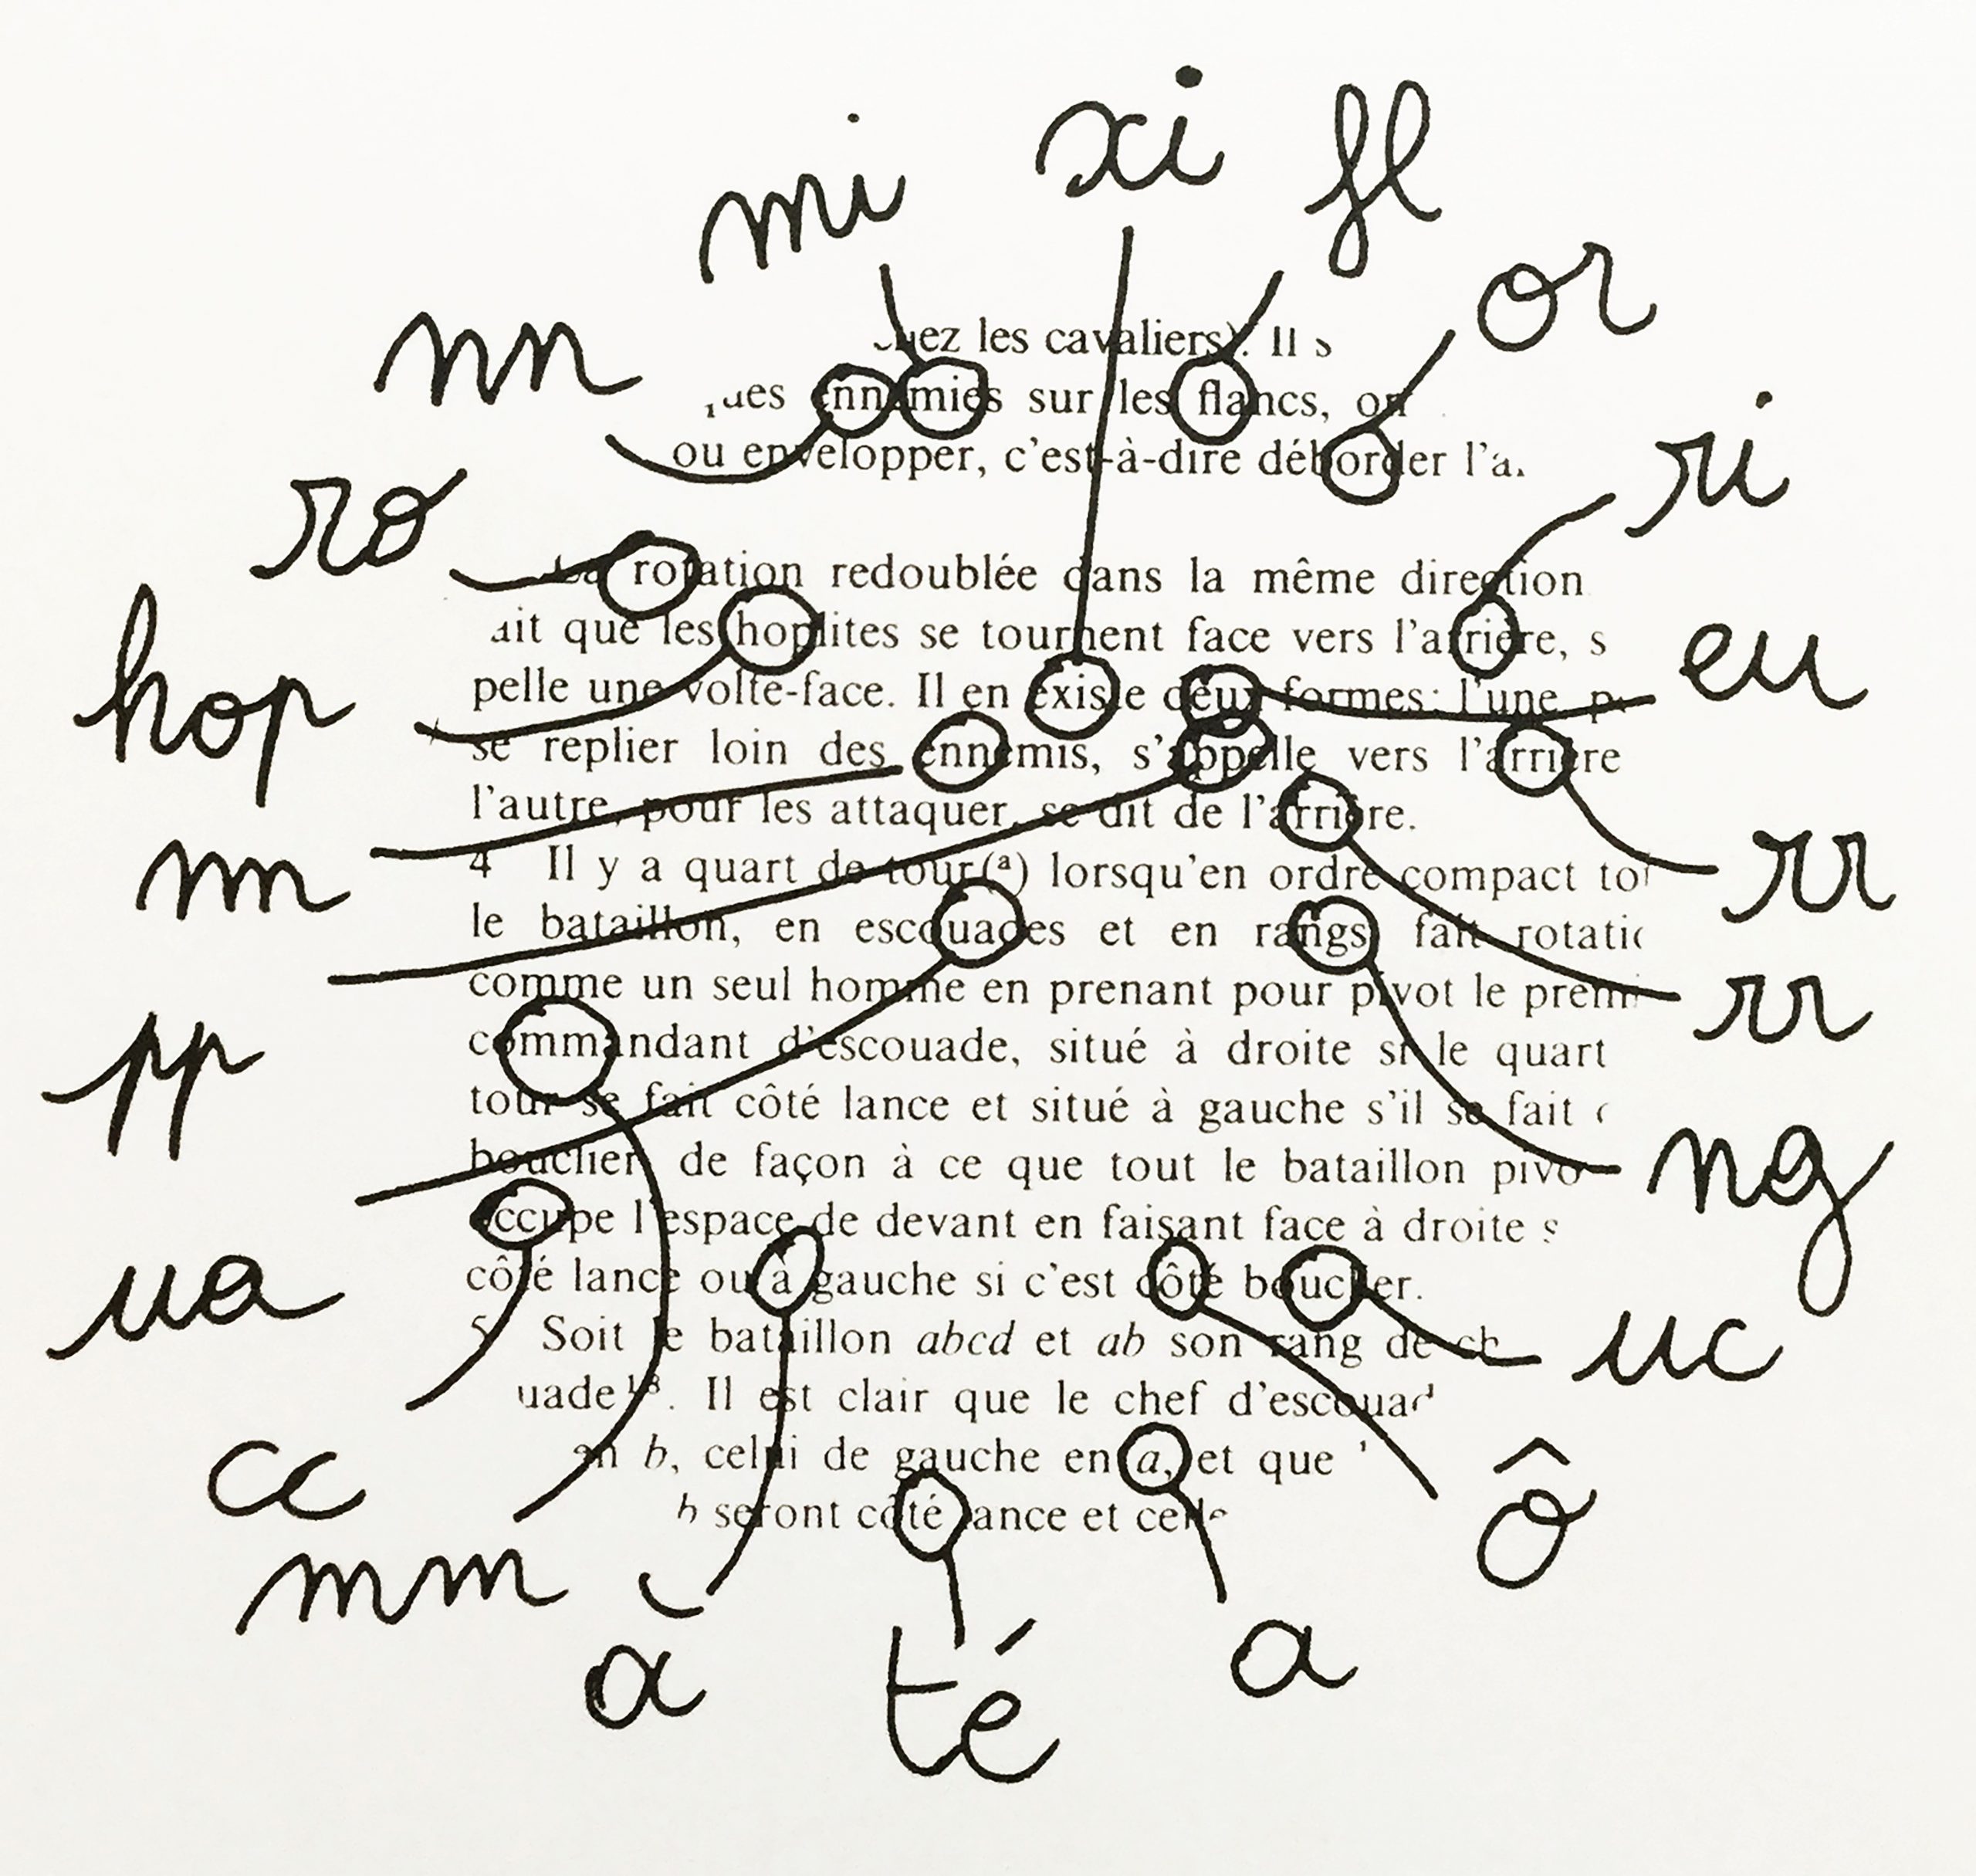 mi xi fl
or
nn
ri
ro
hop
eu
nn
rr
pp
rr
ng
ua
uc
cc
ô
mm
à té a
les cavaliers). Il
ennemies sur les flancs, on
ou envelopper, c'est-à-dire déborder
rotation redoublée dans la même direction
que les hoplites se tournent face vers l'arrière,
pelle une volte-face. Il en existe deux formes: l'une
se replier loin des ennemis, s'appelle vers l'arrière
l'autre, pour les attaquer, se dit de l'arrière.
4 Il y a quart de tour(a) lorsqu'en ordre compact
le bataillon, en escouades et en rangs, fait
comme un seul homme en prenant pour pivot le
commandant d'escouade, situé à droite si le quart
tour se fait côté lance et situé à gauche s'il se fait
bouclier, de façon à ce que tout le bataillon
occupe l'espace de devant en faisant face à droite
côté lance ou à gauche si c'est côté bouclier.
5 Soit le bataillon abcd et ab son rang de
uade¹⁸. Il est clair que le chef
en b, celui de gauche en a, et que
b seront côté lance et